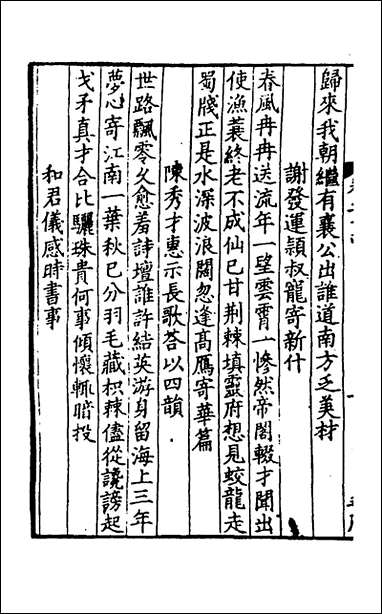 歸來我朝繼有襄公出誰道南方乏美材
謝發運穎叔寵寄新什
春風冉冉送流年一望雲霄一慘然帝閣輟才聞出
使漁蓑終老不成仙已甘荆棘填靈府想見蛟龍走
蜀牋正是水深波浪闊忽逢高鴈寄華篇
陳秀才惠示長歌荅以四韻
世路飄零久愈羞詩壇誰許結英游身留海上三年
夢心寄江南一葉秋已分羽毛藏枳棘儘從讒謗起
戈矛真才合比驪珠貴何事傾懷輒暗投
和君儀感時書事